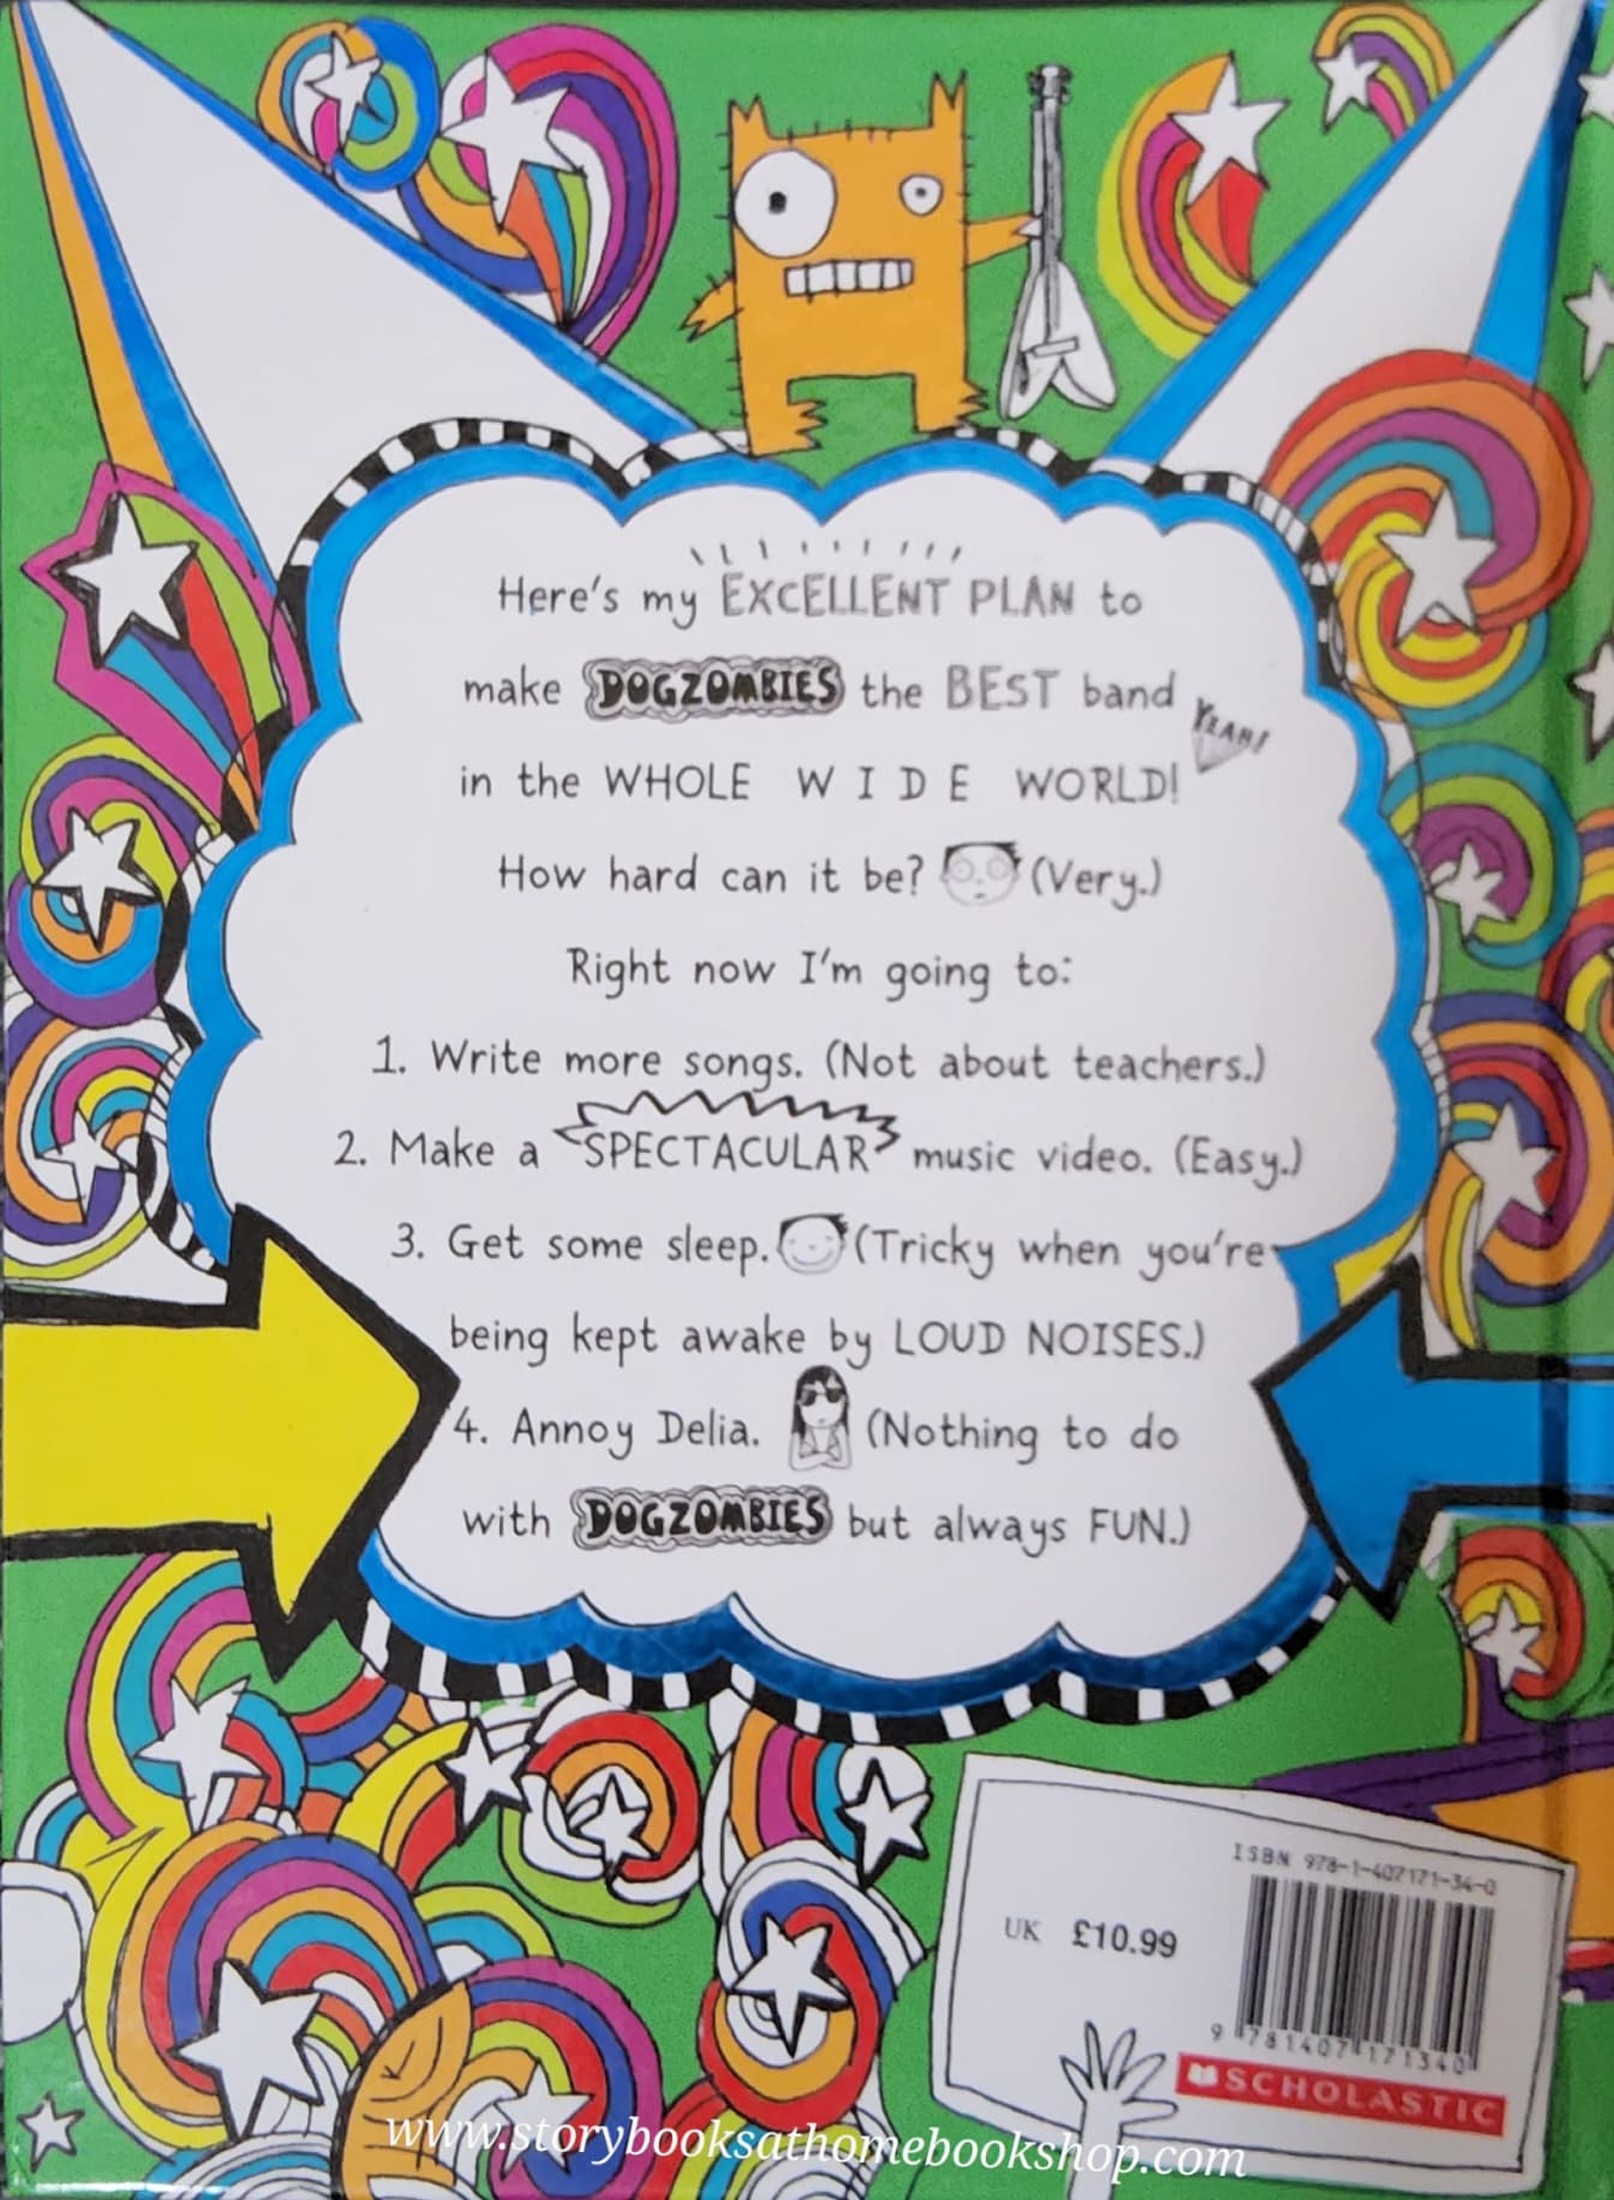 Here's my EXCELLENT PLAN to
make DOGZOMBIES the BEST band
YEAH!
in the WHOLE W I D E WORLD!
How hard can it be? (Very.)
Right now I'm going to:
1. Write more songs. (Not about teachers.)
2. Make a SPECTACULAR music video. (Easy.)
3. Get some sleep. (Tricky when you're
being kept awake by LOUD NOISES.)
4. Annoy Delia. (Nothing to do
with DOGZOMBIES but always FUN.)
ISBN 978-1-407171-34-0
UK £10.99
9 781407 171340
SCHOLASTIC
www.storybooksathomebookshop.com